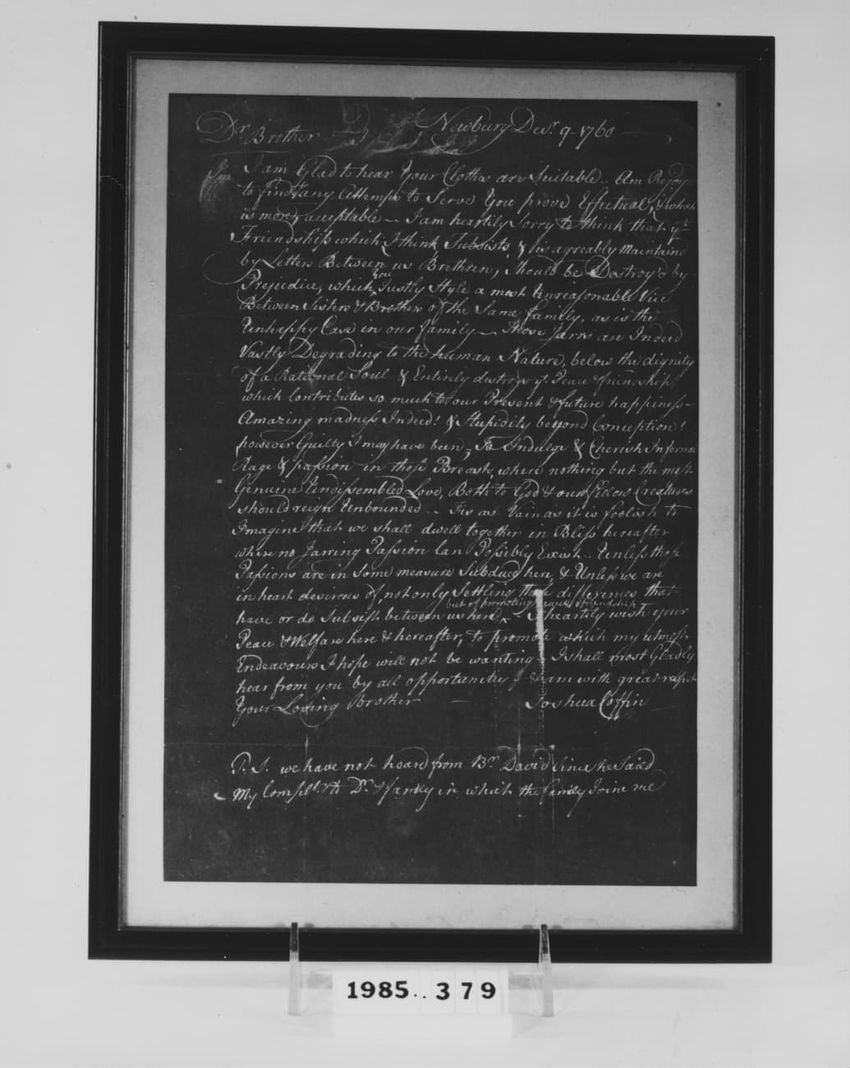 Dr Brother Newbury Decr. 9. 1760
I am Glad to hear Your Cloths are Suitable. Am Rejoyd
to find any Attempts to Serve You prove Effectual, & what
is more acceptable — I am heartily Sorry to think that ye
Friendship which I think Subsists & is agreably Maintaind
by Letters Between us Brethren, Should be Destroyd by
Prejudice, which you Justly Style a most Unreasonable Vice
Between Sisters & Brothers of the Same family, as is the
Unhappy Case in our family — Those Jarrs are Indeed
Vastly Degrading to the human Nature, below the dignity
of a Rational Soul & Entirely destroys ye Peace & friendship
which Contributes so much to our Present & future happiness —
Amazing madness Indeed! & Stupidity beyond Conception!
however Guilty I may have been, To Indulge & Cherish Infernal
Rage & passion in those Breasts, where nothing but the most
Genuine Undissembled Love, Both to God & our fellow Creatures
should reign Unbounded — Tis as Vain as it is foolish to
Imagine that we shall dwell together in Bliss hereafter
where no Jarring Passion Can Possibly Exist. Unless those
Passions are in Some measure Subdued here, & Unless we are
in heart desirous of not only Settling those differences that
have or do Subsist between us here, but of promoting peace & friendship I heartily wish your
Peace & Welfare here & hereafter, to promote which my utmost
Endeavours I hope will not be wanting — I shall most Gladly
hear from you by all opportunities & am with great respect
Your Loving Brother — Joshua Coffin
P. S. we have not heard from Br. David Since he Saild
My Complts. to Dr. & family in which the family Joine me
1985..379